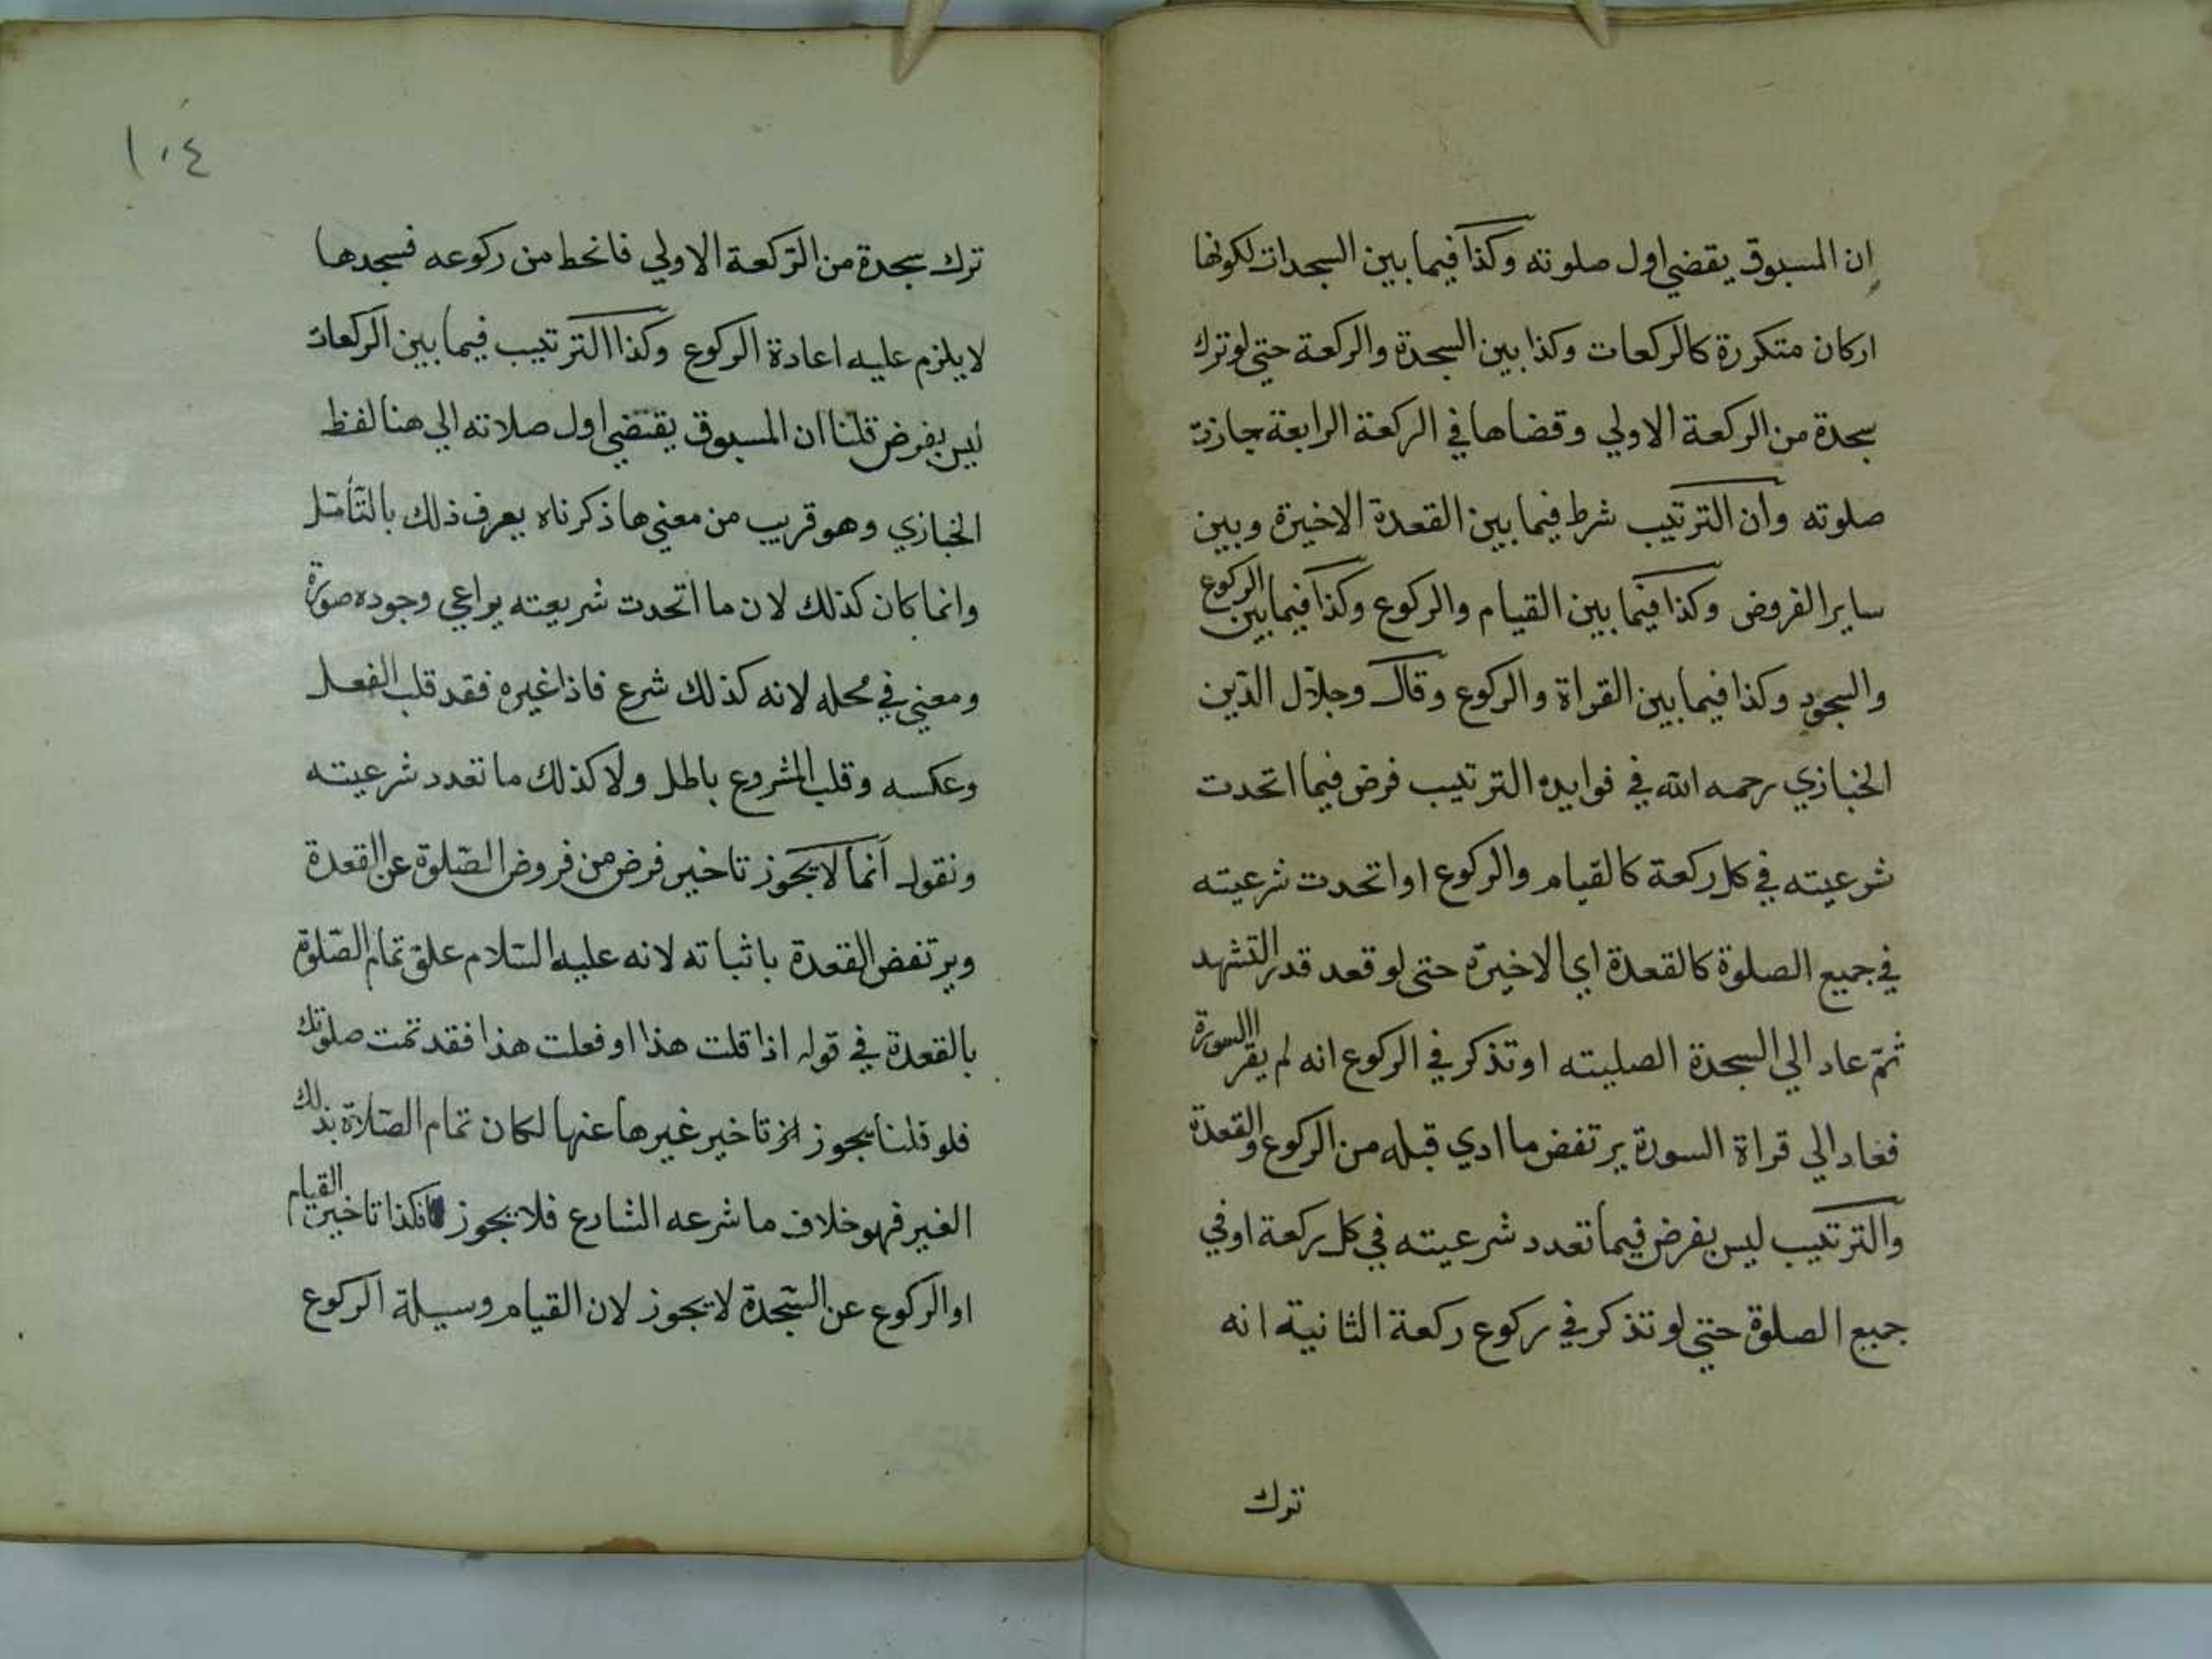 ان المسبوق يقضي اول صلوته وكذا فيما بين السجدات لكونها
اركان متكررة كالركعات وكذا بين السجدة والركعة حتي لو ترك
سجدة من الركعة الاولي وقضاها في الركعة الرابعة جازت
صلوته وان الترتيب شرط فيما بين القعدة الاخيرة وبين
ساير الفروض وكذا فيما بين القيام والركوع وكذا فيما بين الركوع
والسجود وكذا فيما بين القراة والركوع وقال وجلال الدّين
الخبازي رحمه الله في فوايده الترتيب فرض فيما اتحدت
شرعيته في كل ركعة كالقيام والركوع او اتحدت شرعيته
في جميع الصلوة كالقعدة اي الاخيرة حتى لو قعد قدر التشهد
ثمّ عاد الي السجدة الصلبيته او تذكر في الركوع انه لم يقرا السورة
فعاد الي قراة السورة يرتفض ما ادي قبله من الركوع والقعدة
والترتيب ليس بفرض فيما تعدد شرعيته في كل ركعة او في
جميع الصلوة حتي لو تذكر في ركوع ركعة الثانية انه
ترك
١٠٤
ترك سجدة من الرّكعة الاولي فانحط من ركوعه فسجدها
لا يلزم عليه اعادة الركوع وكذا الترتيب فيما بين الركعات
ليس بفرض قلنا ان المسبوق يقتضي اول صلاته الي هنا لفظ
الخبازي وهو قريب من معني ما ذكرناه يعرف ذلك بالتّأمّل
وانما كان كذلك لان ما اتحدت شريعته يراعي وجوده صورة
ومعني في محله لانه كذلك شرع فاذا غيره فقد قلب الفعل
وعكسه وقلب المشروع باطل ولا كذلك ما تعدد شرعيته
ونقول انما لا يجوز تاخير فرض من فروض الصّلوة عن القعدة
ويرتفض القعدة باثباته لانه عليه السّلام علق تمام الصّلوة
بالقعدة في قوله اذا قلت هذا او فعلت هذا فقد تمت صلوتك
فلو قلنا يجوز تاخير غيرها عنها لكان تمام الصّلاة بذلك
الغير فهو خلاف ما شرعه الشارع فلا يجوز فكذا تاخير القيام
او الركوع عن السّجدة لا يجوز لان القيام وسيلة الركوع